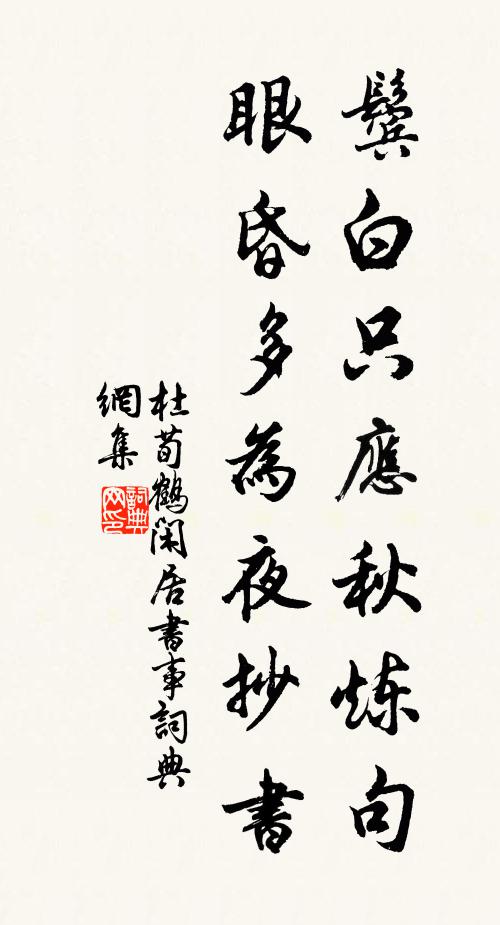 鬢白只應秋炼句
眼昏多為夜抄書
杜荀鶴閑居書事詞典
網集
詞典
网印